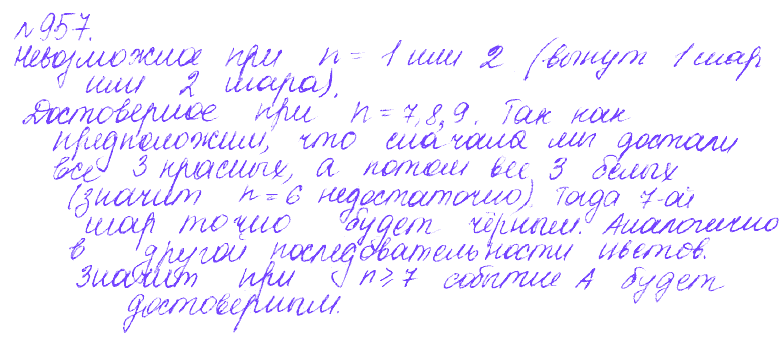 №957.
Невозможное при n = 1 или 2 (вынут 1 шар
или 2 шара).
Достоверное при n = 7,8,9. Так как
предположим, что сначала мы достали
все 3 красных, а потом все 3 белых
(значит n = 6 недостаточно). Тогда 7-ой
шар точно будет чёрным. Аналогично
в другой последовательности цветов.
Значит при n ⩾ 7 событие A будет
достоверным.